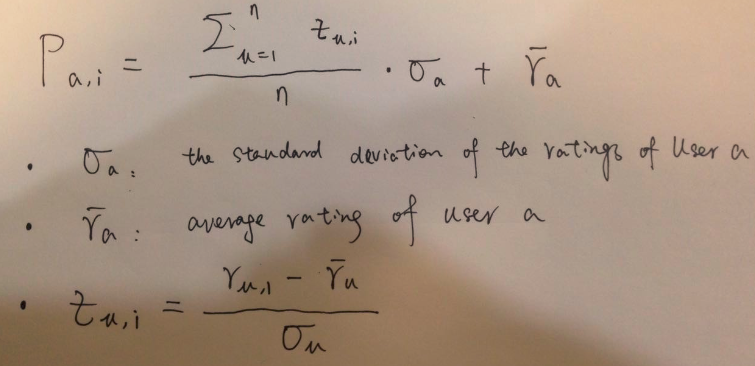 P_{a,i} = \frac{\sum_{u=1}^{n} z_{u,i}}{n} \cdot \sigma_a + \bar{r}_a
• σ_a: the standard deviation of the ratings of User a
• \bar{r}_a: average rating of user a
• z_{u,i} = \frac{r_{u,1} - \bar{r}_u}{\sigma_u}